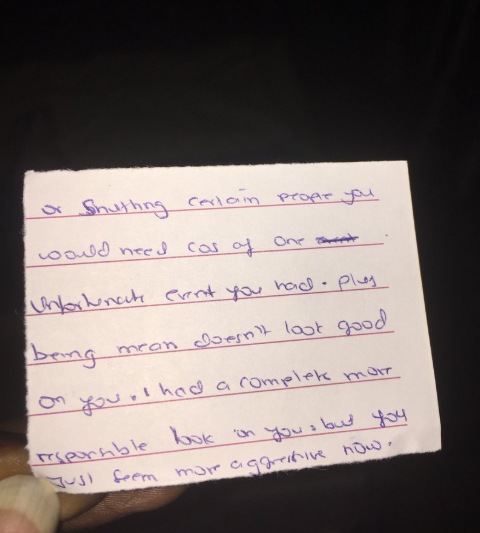 or Shutting certain people you
would need cos of one
unfortunate event you had. plus
being mean doesn't look good
on you. I had a complete more
responsible look on you, but you
Just seem more aggressive now.